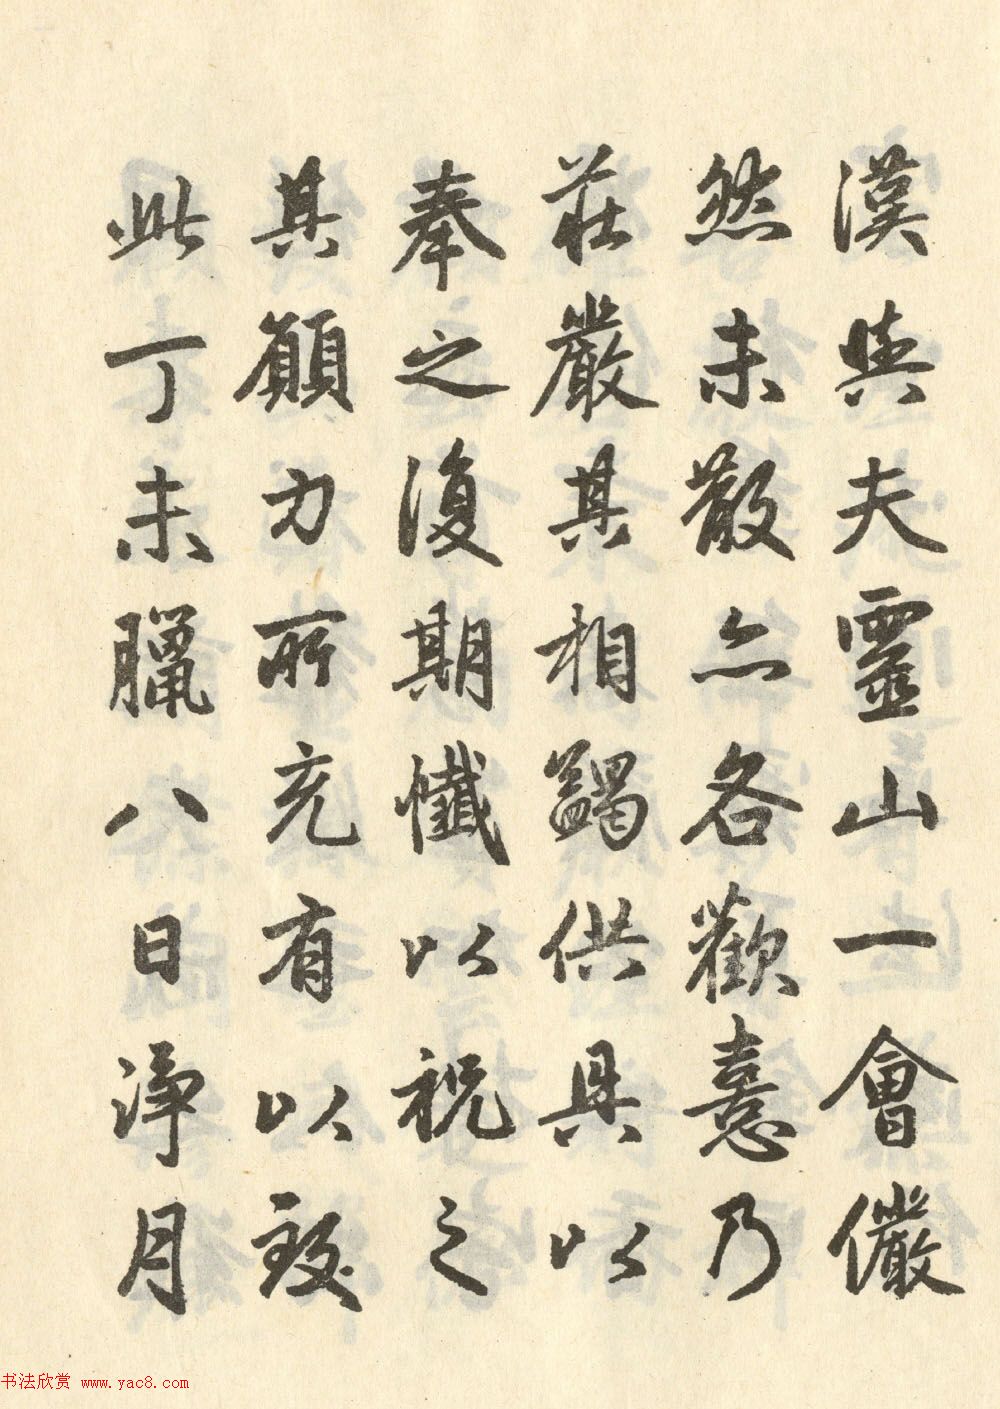 漢與夫靈山一會儼
然未散亦各歡憙乃
莊嚴其相蠲供具以
奉之復期懺以祝之
其願力所充有以致
此丁未臘八日淨月
书法欣赏 www.yac8.com